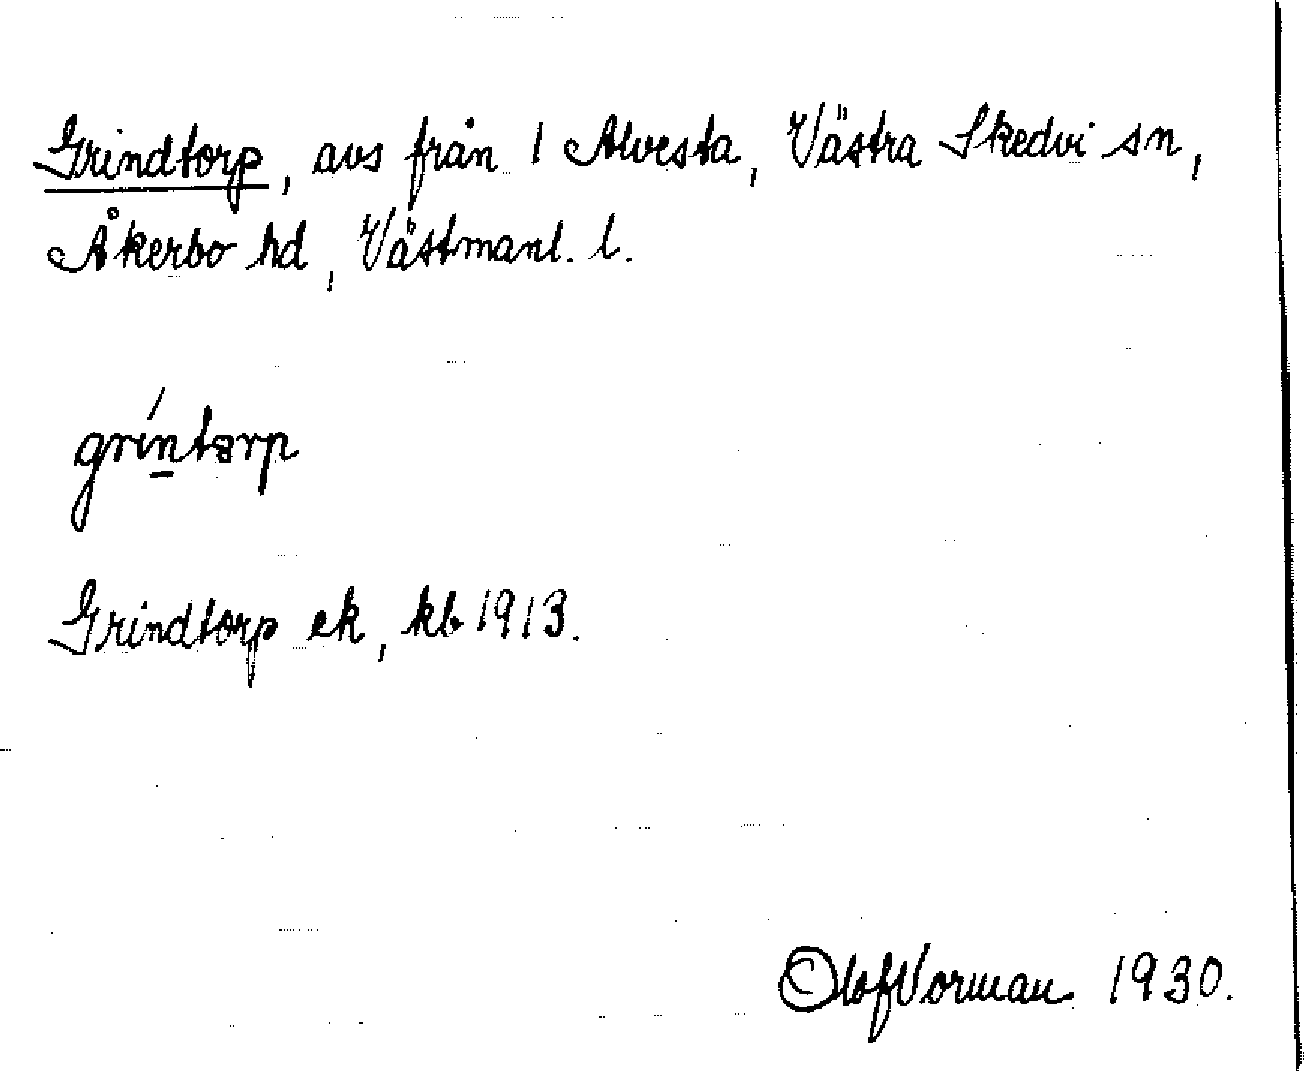 Grindtorp, avs från 1 Alvesta, Västra Skedvi sn,
Åkerbo hd, Västmanl. l.
gríntarp
Grindtorp ek, kb 1913.
Olof Vorman 1930.